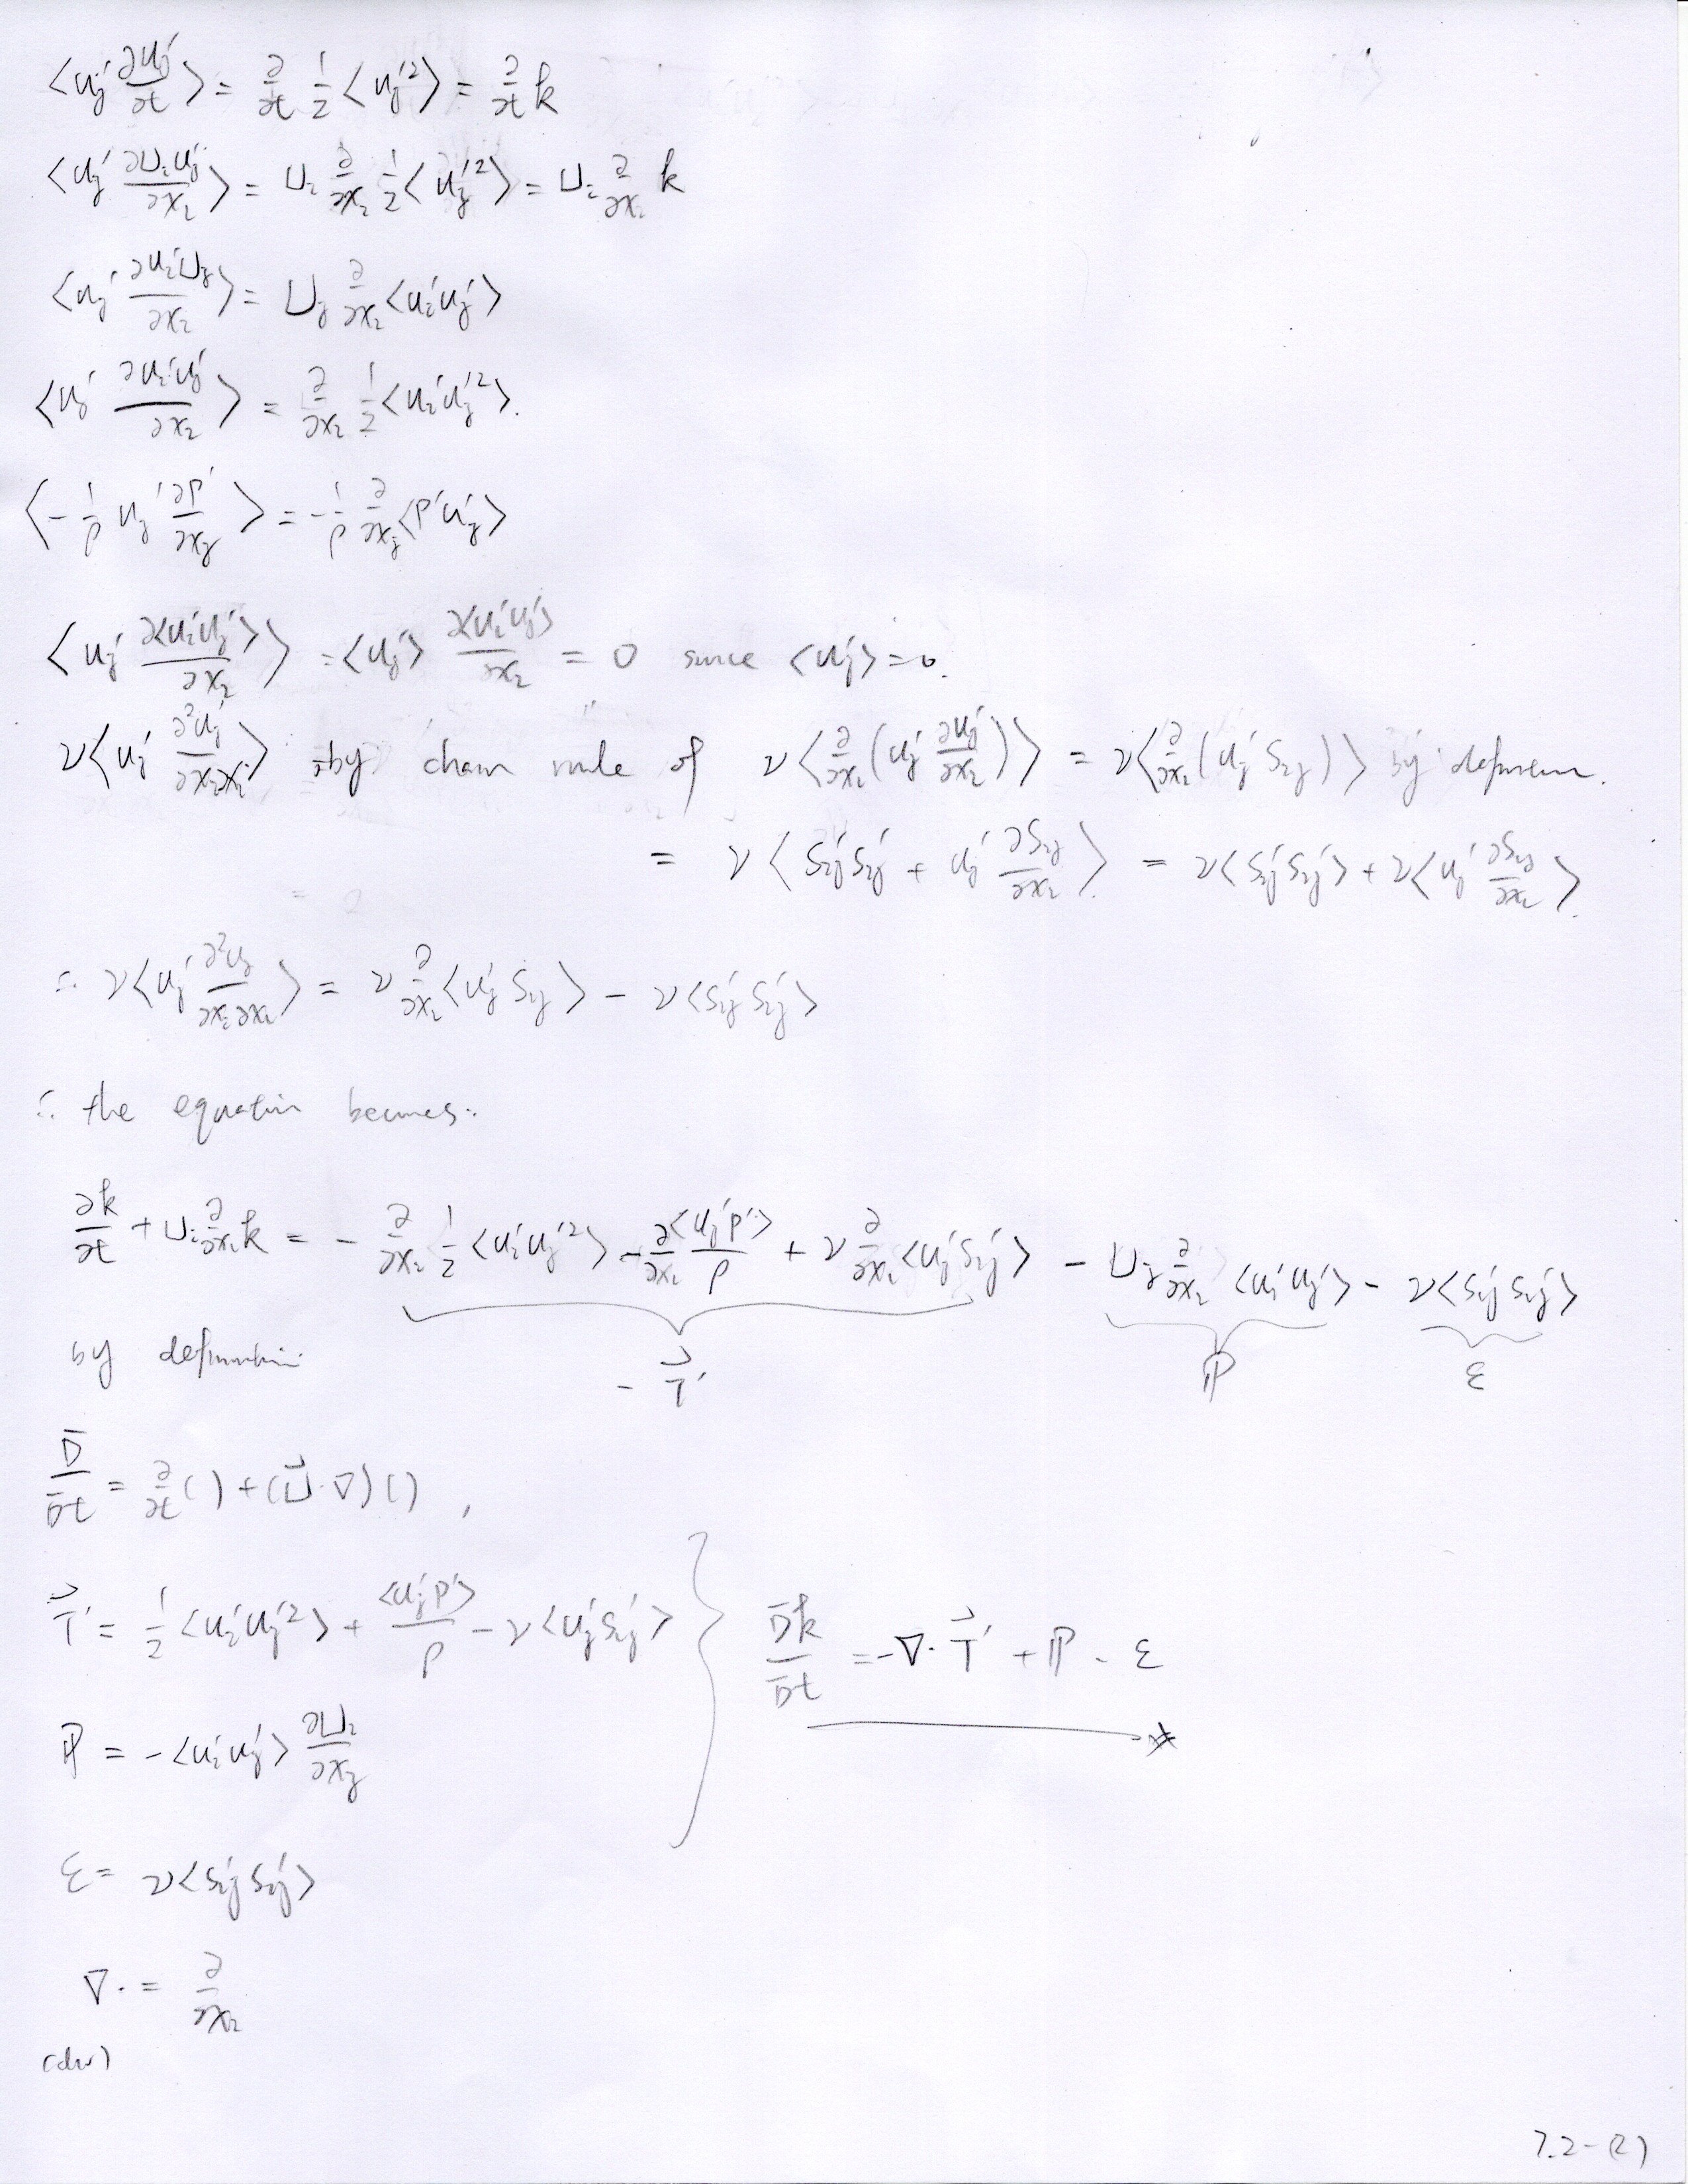 ⟨uj' ∂uj'/∂t⟩ = ∂/∂t 1/2 ⟨uj'²⟩ = ∂/∂t k
⟨uj' ∂Ui uj'/∂xi⟩ = Ui ∂/∂xi 1/2 ⟨uj'²⟩ = Ui ∂/∂xi k
⟨uj' ∂ui'Uj/∂xi⟩ = Uj ∂/∂xi ⟨ui'uj'⟩
⟨uj' ∂ui'uj'/∂xi⟩ = ∂/∂xi 1/2 ⟨ui'uj'²⟩.
⟨-1/ρ uj' ∂p'/∂xj⟩ = -1/ρ ∂/∂xj ⟨p'uj'⟩
⟨uj' ∂⟨ui'uj'⟩/∂xi⟩ = ⟨uj'⟩ ∂⟨ui'uj'⟩/∂xi = 0 since ⟨uj'⟩ = 0.
ν⟨uj' ∂²uj'/∂xi∂xi⟩ = by chain rule of ν⟨∂/∂xi (uj' ∂uj'/∂xi)⟩ = ν⟨∂/∂xi (uj' Sij)⟩ by definition.
= ν⟨Sij' Sij' + uj' ∂Sij/∂xi⟩ = ν⟨Sij' Sij'⟩ + ν⟨uj' ∂Sij/∂xi⟩.
∴ ν⟨uj' ∂²uj/∂xi∂xi⟩ = ν ∂/∂xi ⟨uj' Sij⟩ - ν⟨Sij' Sij'⟩
∴ the equation becomes:
∂k/∂t + Ui ∂/∂xi k = - ∂/∂xi 1/2 ⟨ui'uj'²⟩ - ∂/∂xi ⟨uj'p'⟩/ρ + ν ∂/∂xi ⟨uj'Sij'⟩ - Uj ∂/∂xi ⟨ui'uj'⟩ - ν⟨Sij' Sij'⟩
by definition
- T⃗' ℙ ε
D̄/D̄t = ∂/∂t ( ) + (U⃗·∇)( ) ,
T⃗' = 1/2 ⟨ui'uj'²⟩ + ⟨uj'p'⟩/ρ - ν⟨uj'Sij'⟩
D̄k/D̄t = -∇·T⃗' + ℙ - ε
ℙ = -⟨ui'uj'⟩ ∂Ui/∂xj
ε = ν⟨Sij' Sij'⟩
∇· = ∂/∂xi
(div)
7.2-(2)